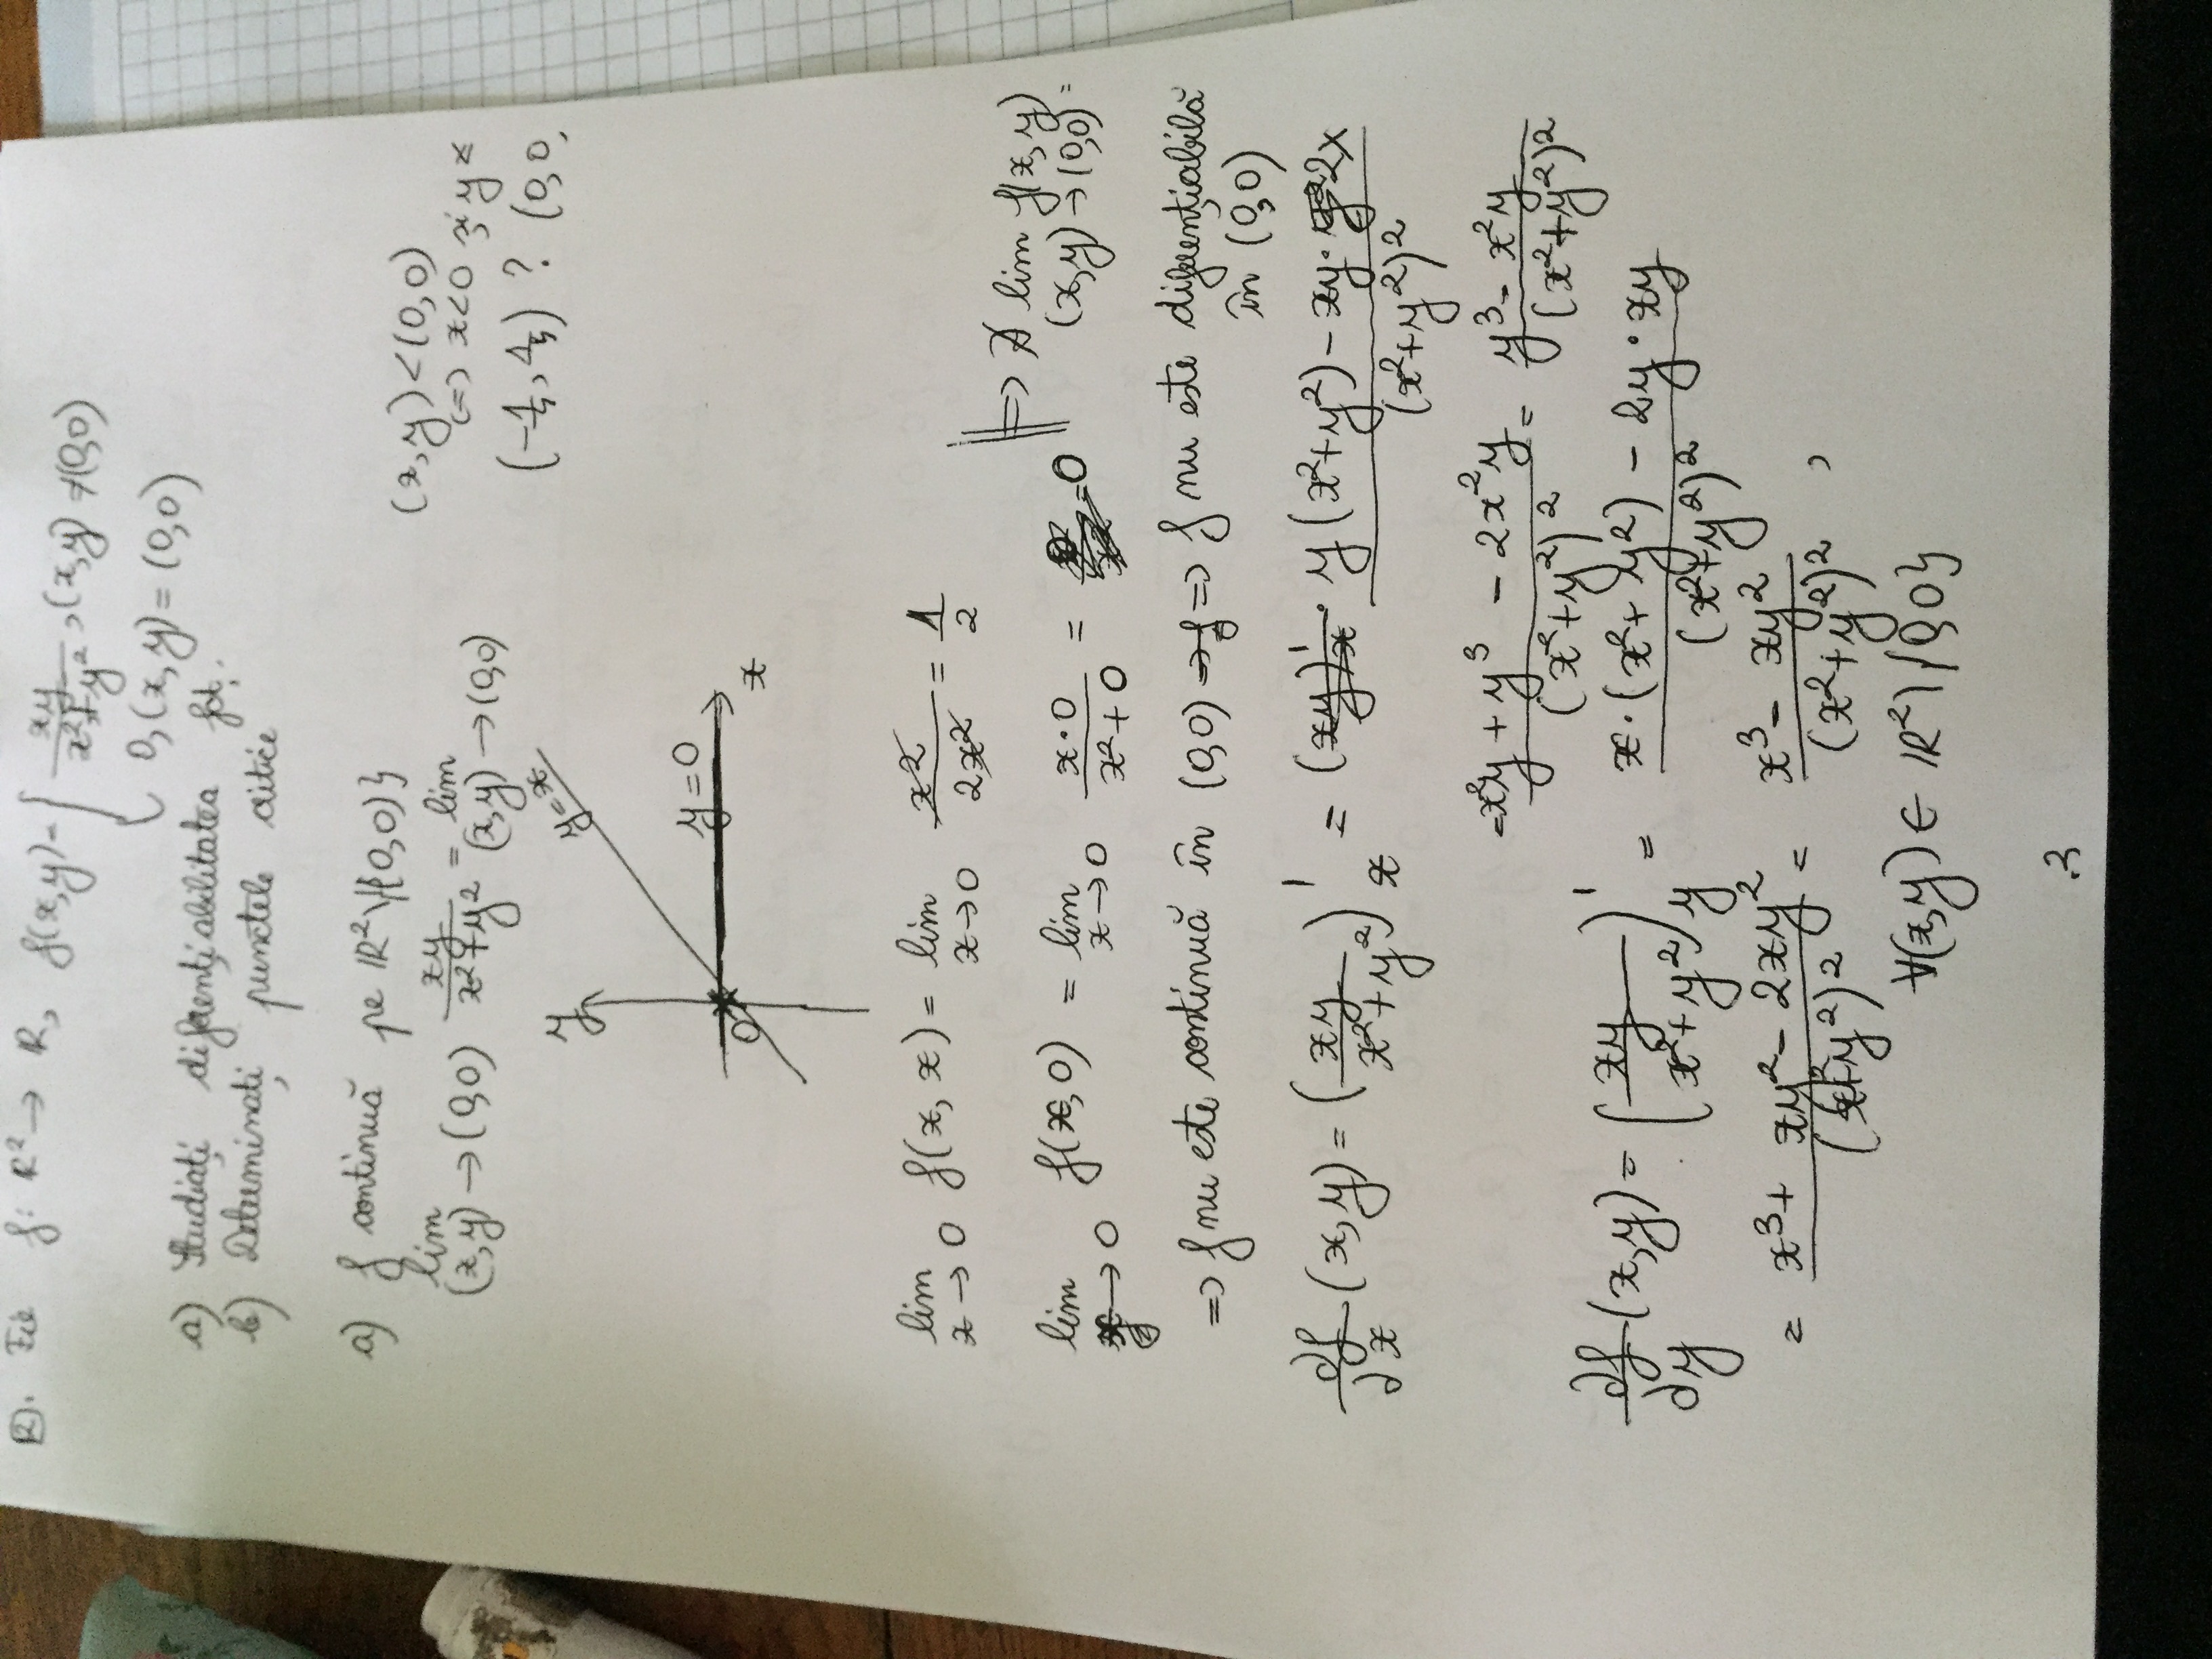 2). Fie f: R² → R, f(x,y) = { xy/(x²+y²), (x,y) ≠ (0,0)
0, (x,y) = (0,0)
a) Studiați diferențiabilitatea fcț.
b) Determinați punctele critice
a) f continuă pe R² \ {(0,0)}
lim (x,y)→(0,0) xy/(x²+y²) = lim (x,y)→(0,0)
(x,y) < (0,0)
<=> x<0 și y <
(-1/5, 1/5) ? (0,0
y
y=x
y=0
O
x
lim x→0 f(x,x) = lim x→0 x²/2x² = 1/2
lim y→0 f(x,0) = lim x→0 x·0/(x²+0) = 0
=> ∄ lim f(x,y) (x,y)→(0,0)
=> f nu este continuă în (0,0) => f nu este diferențiabilă
în (0,0)
∂f/∂x (x,y) = (xy/(x²+y²))'x = (y(x²+y²) - xy·2x)/(x²+y²)²
= (x²y + y³ - 2x²y)/(x²+y²)² = (y³ - x²y)/(x²+y²)²
∂f/∂y (x,y) = (xy/(x²+y²))'y = (x·(x²+y²) - 2y·xy)/(x²+y²)²
= (x³ + xy² - 2xy²)/(x²+y²)² = (x³ - xy²)/(x²+y²)² ,
∀(x,y) ∈ R² \ {0,0}
3